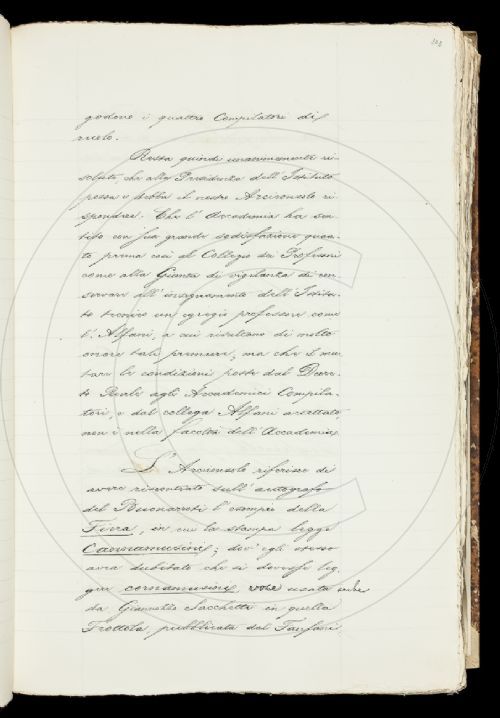 godono i quattro Compilatori di
ruolo.
Resta quindi unanimemente ri-
soluto, che alla Presidenza dell'Istituto
possa e debba il nostro Arciconsolo ri-
spondere: Che l'Accademia ha sen-
tito con sua grande sodisfazione quan-
to prema così al Collegio dei Professori
come alla Giunta di vigilanza di con-
servare all'insegnamento dell'Istitu-
to tecnico un egregio professore come
l'Alfani, a cui risultano di molto
onore tali premure; ma che il mu-
tare le condizioni poste dal Decre-
to Reale agli Accademici Compila-
tori, e dal collega Alfani accettate,
non è nella facoltà dell'Accademia.
L'Arciconsolo riferisce di
avere riscontrato sull'autografo
del Buonarroti l'esempio della
Fiera, in cui la stampa legge
Cannamusini; dov'egli stesso
avea dubitato che si dovesse leg-
gere cornamusini, voce usata anche
da Giannozzo Sacchetti in quella
Frottola, pubblicata dal Fanfani